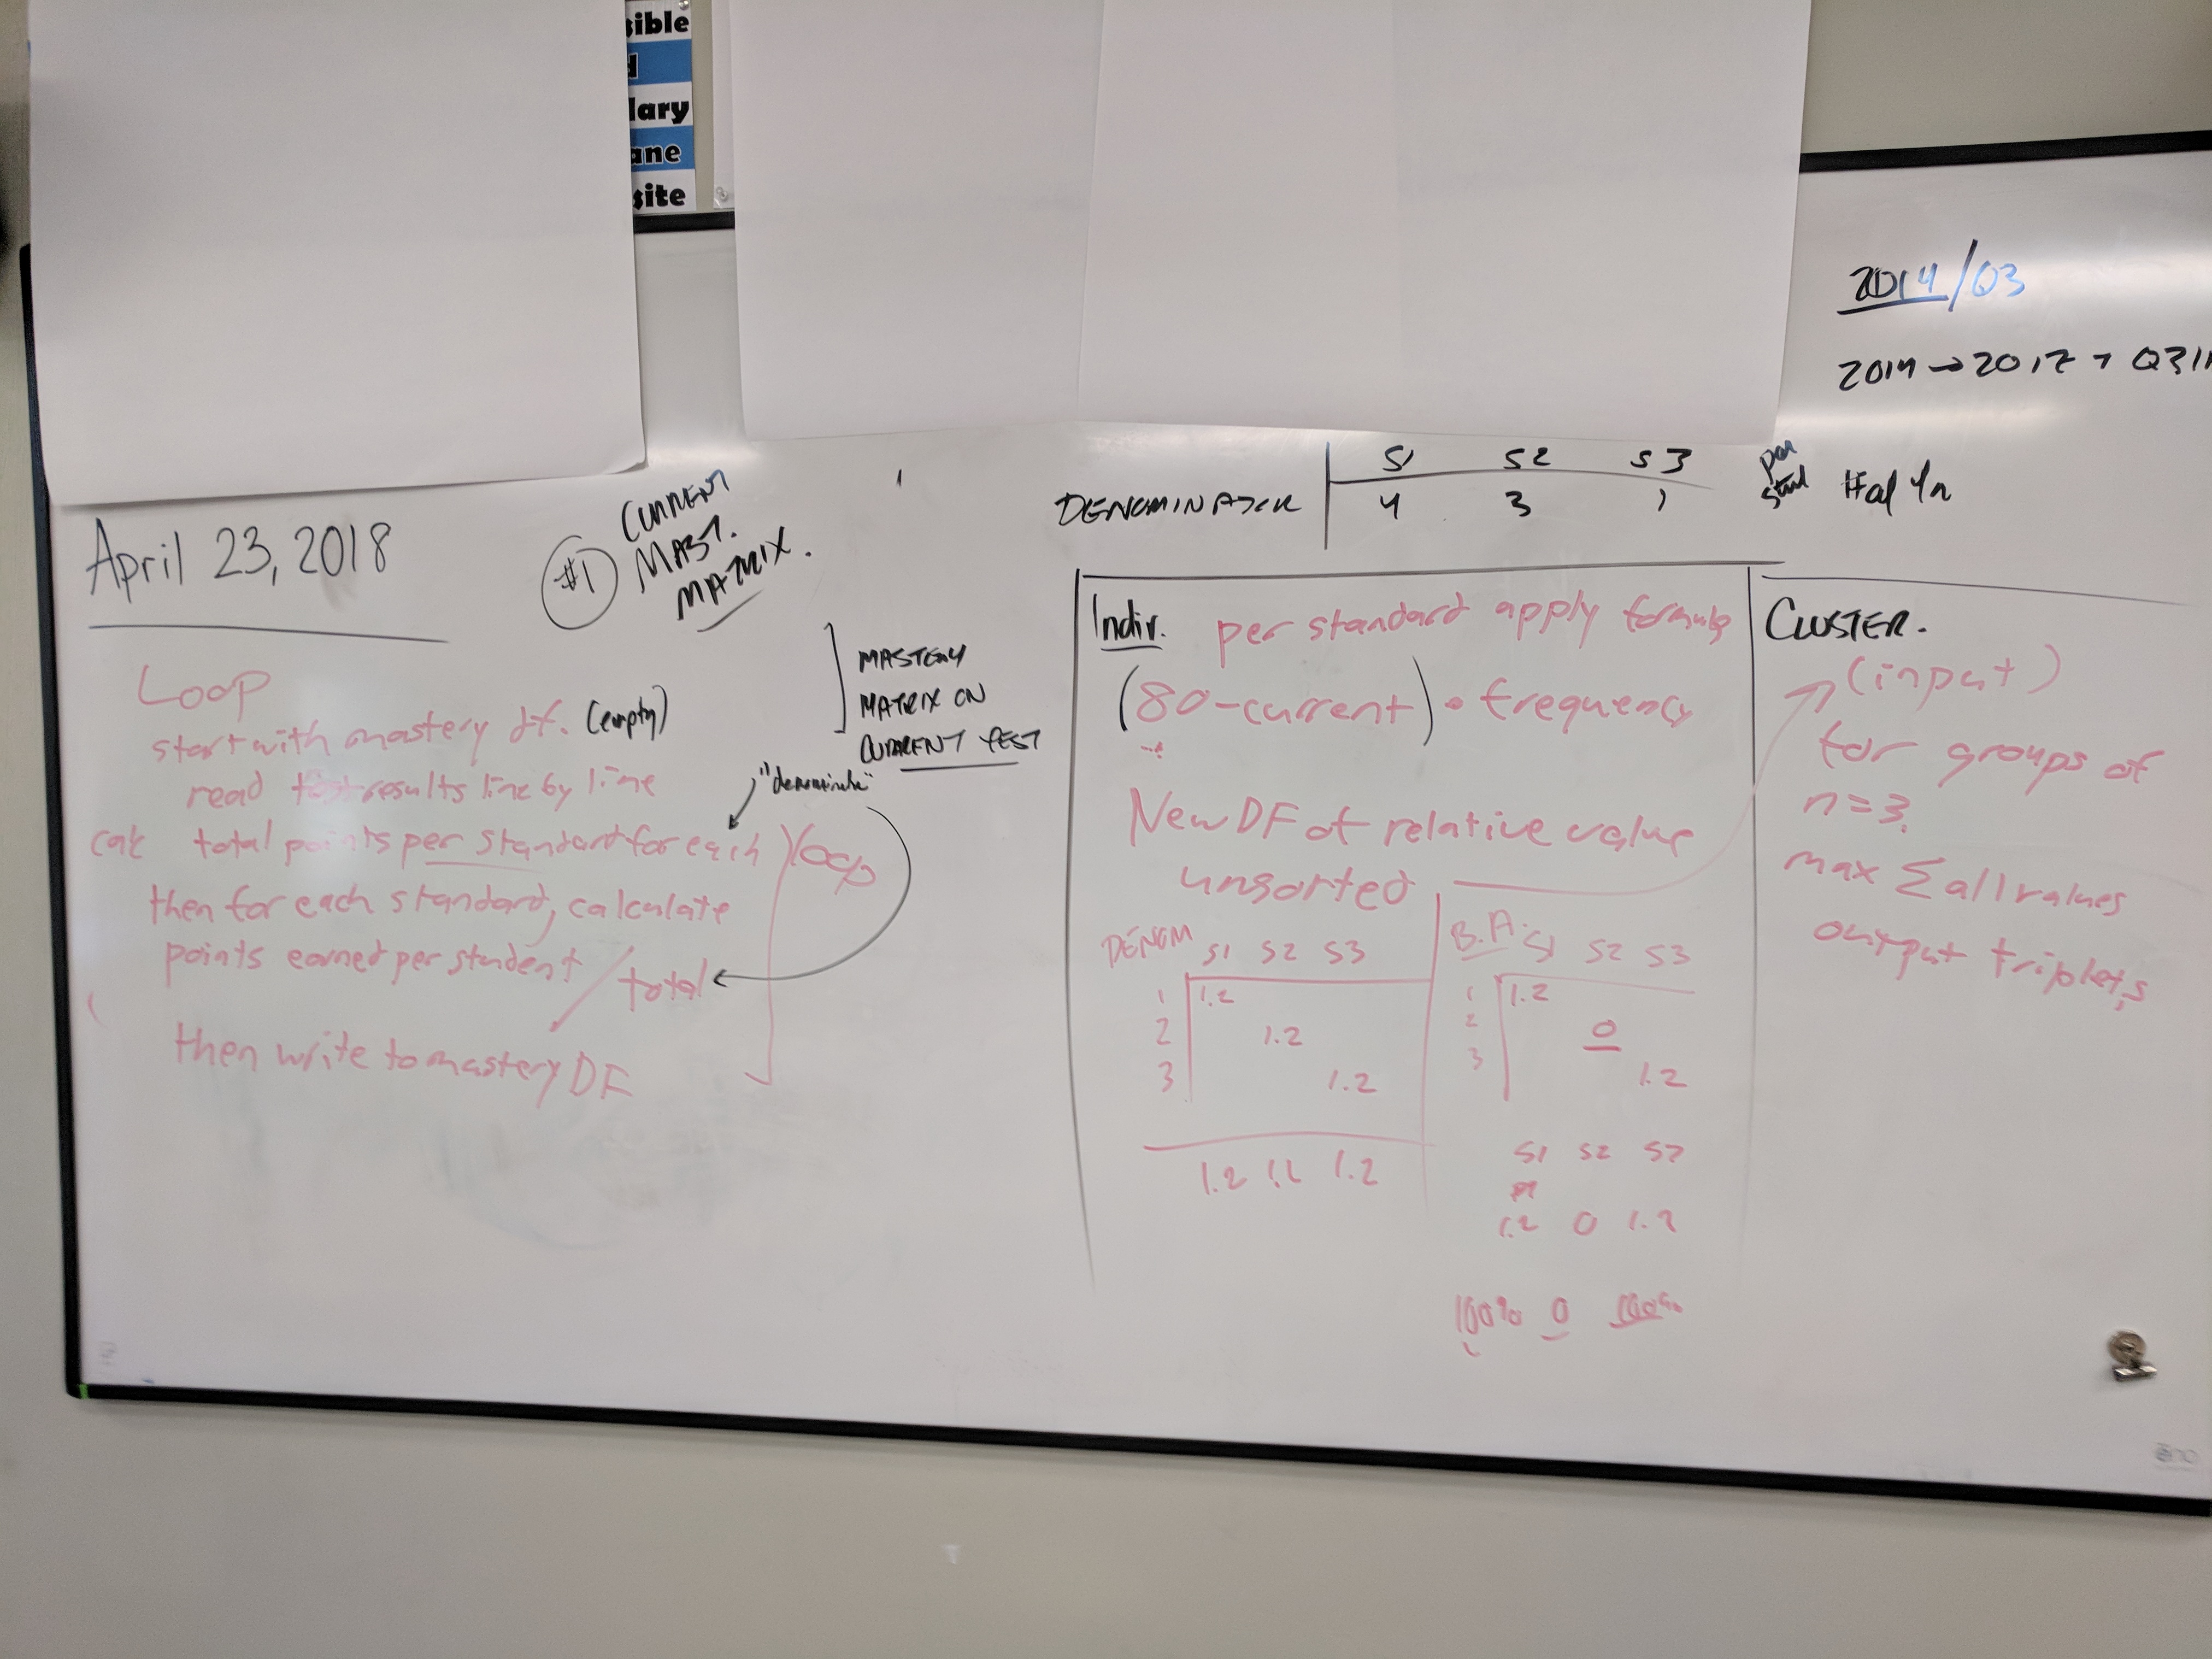 sible
d
lary
ane
site
2014/Q3
2014 → 2017 +
S1 S2 S3
DENOMINATOR 4 3 1
per
April 23, 2018
#1 CURRENT
MAST.
MATRIX.
MASTERY
MATRIX ON
CURRENT TEST
Loop
start with mastery df. (empty)
read test results line by line
calc total points per standard for each loop
then for each standard, calculate
points earned per student / total
then write to mastery DF
Indiv. per standard apply formula
(80-current) • frequency
New DF of relative value
unsorted
DENOM S1 S2 S3
1 1.2
2 1.2
3 1.2
1.2 1.2
B.A. S1 S2 S3
1 1.2
2 0
3 1.2
S1 S2
1.2 0 1.2
100% 0 100%
CLUSTER.
(input)
for groups of
n=3
max Σ all values
output triplets